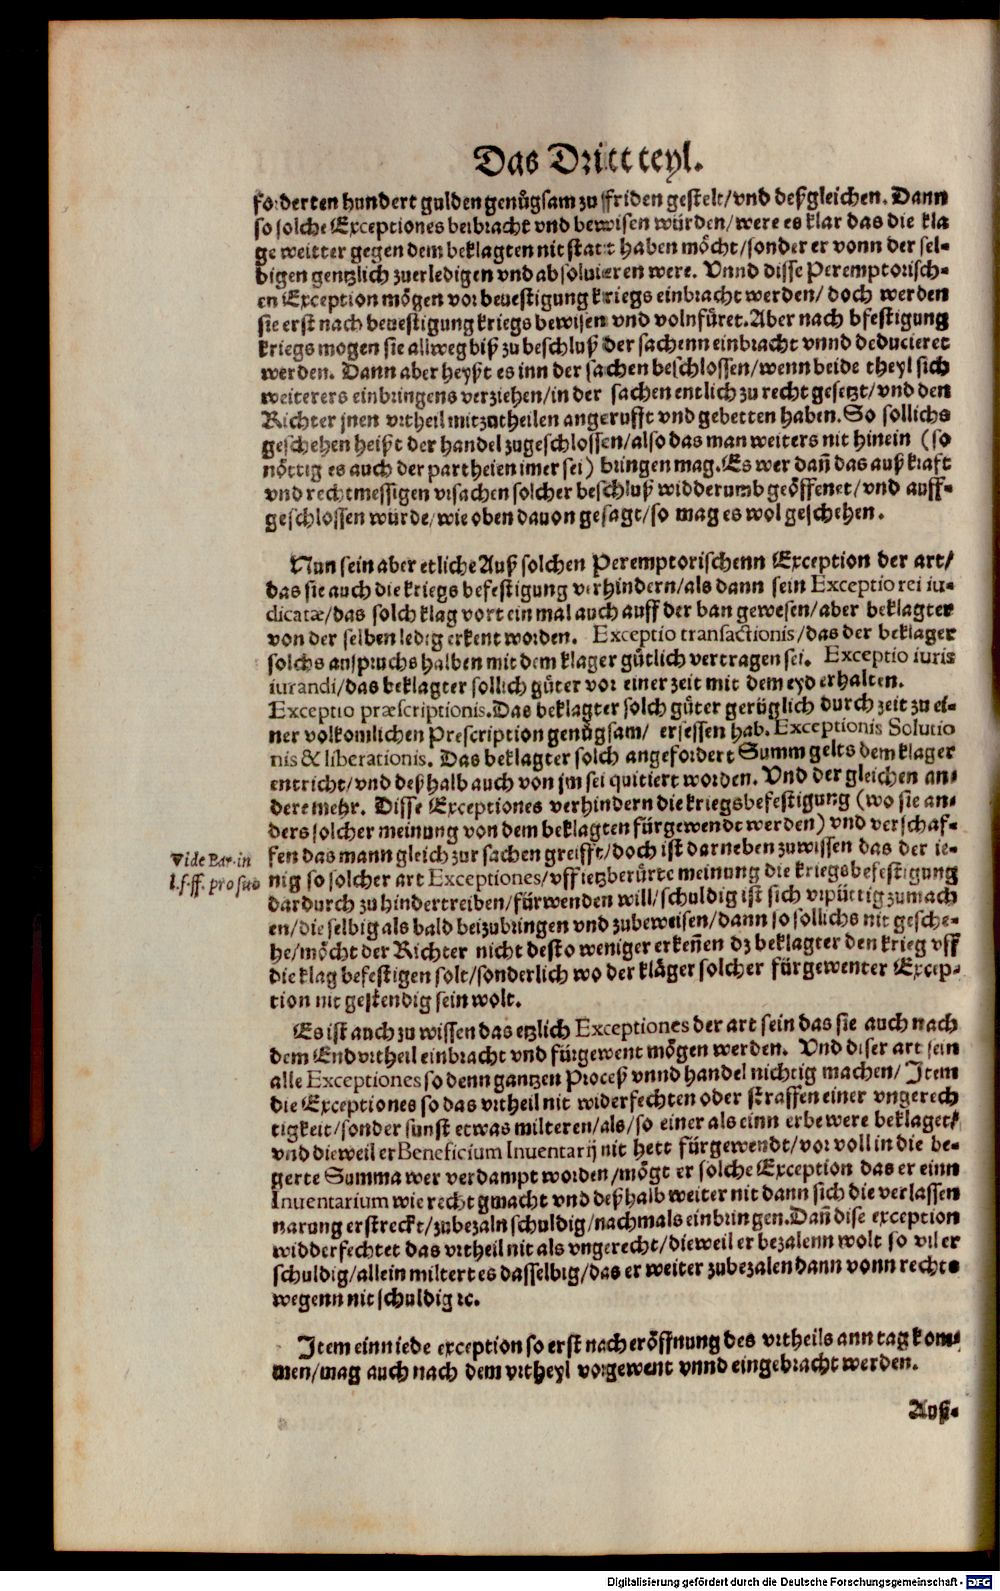 Das Dritt teyl.
forderten hundert gulden genůgsam zu ffriden gestelt/vnd deßgleichen. Dann
so solche Exceptiones beibracht vnd bewisen würden/were es klar das die kla
ge weitter gegen dem beklagten nit statt haben möcht/sonder er vonn der sel-
bigen gentzlich zuerledigen vnd absoluieren were. Vnnd disse Peremptorisch-
en Exception mögen vor beuestigung kriegs einbracht werden/ doch werden
sie erst nach beuestigung kriegs bewisen vnd volnfüret. Aber nach bfestigung
kriegs mogen sie allweg biß zu beschluß der sachenn einbracht vnnd deducieret
werden. Dann aber heyßt es inn der sachen beschlossen/wenn beide theyl sich
weiterers einbringens verziehen/in der sachen entlich zu recht gesetzt/vnd den
Richter jnen vrtheil mitzutheilen angerufft vnd gebetten haben. So sollichs
geschehen heißt der handel zugeschlossen/also das man weiters nit hinein (so
nöttig es auch der partheien imer sei) bringen mag. Es wer dañ das auß kraft
vnd rechtmessigen vrsachen solcher beschluß widderumb geöffenet/vnd auff-
geschlossen würde/wie oben dauon gesagt/so mag es wol geschehen.
Nun sein aber etliche Auß solchen Peremptorischenn Exception der art/
das sie auch die kriegs befestigung verhindern/als dann sein Exceptio rei iu-
dicatæ/das solch klag vort ein mal auch auff der ban gewesen/aber beklagter
von der selben ledig erkent worden. Exceptio transactionis/das der beklager
solchs anspruchs halben mit dem klager gütlich vertragen sei. Exceptio iuris
iurandi/das beklagter sollich güter vor einer zeit mit dem eyd erhalten.
Exceptio præscriptionis. Das beklagter solch güter gerüglich durch zeit zu ei-
ner volkomlichen Prescription genůgsam/ ersessen hab. Exceptionis Solutio
nis & liberationis. Das beklagter solch angefordert Summ gelts dem klager
entricht/vnd deßhalb auch von jm sei quitiert worden. Vnd der gleichen an-
dere mehr. Disse Exceptiones verhindern die kriegsbefestigung (wo sie an-
ders solcher meinung von dem beklagten fürgewendt werden) vnd verschaf-
fen das mann gleich zur sachen greifft/doch ist darneben zuwissen das der ie-
Vide Bar. in
l. f. ff. pro suo
nig so solcher art Exceptiones/vff ietzberürte meinung die kriegsbefestigung
dardurch zu hindertreiben/fürwenden will/schuldig ist sich vrpüttig zumach
en/die selbig als bald beizubringen vnd zubeweisen/dann so sollichs nit gesche-
he/möcht der Richter nicht desto weniger erkeñen dz beklagter den krieg vff
die klag befestigen solt/sonderlich wo der kläger solcher fürgewenter Excep-
tion nit gestendig sein wolt.
Es ist auch zu wissen das etzlich Exceptiones der art sein das sie auch nach
dem End vrtheil einbracht vnd fürgewent mögen werden. Vnd diser art sein
alle Exceptiones so denn gantzen Proceß vnnd handel nichtig machen/ Item
die Exceptiones so das vrtheil nit widerfechten oder straffen einer vngerech
tigkeit/sonder sunst etwas milteren/als/so einer als einn erbe were beklaget/
vnd dieweil er Beneficium Inuentarij nit hett fürgewendt/vor voll in die be-
gerte Summa wer verdampt worden/mögt er solche Exception das er einn
Inuentarium wie recht gmacht vnd deßhalb weiter nit dann sich die verlassen
narung erstreckt/zubezaln schuldig/nachmals einbringen. Dañ dise exception
widderfechtet das vrtheil nit als vngerecht/dieweil er bezalenn wolt so vil er
schuldig/allein miltert es dasselbig/das er weiter zubezalen dann vonn rechts
wegenn nit schuldig ꝛc.
Item einn iede exception so erst nach eröffnung des vrtheils ann tag kom-
men/mag auch nach dem vrtheyl vorgewent vnnd eingebracht werden.
Auß-
Digitalisierung gefördert durch die Deutsche Forschungsgemeinschaft - DFG